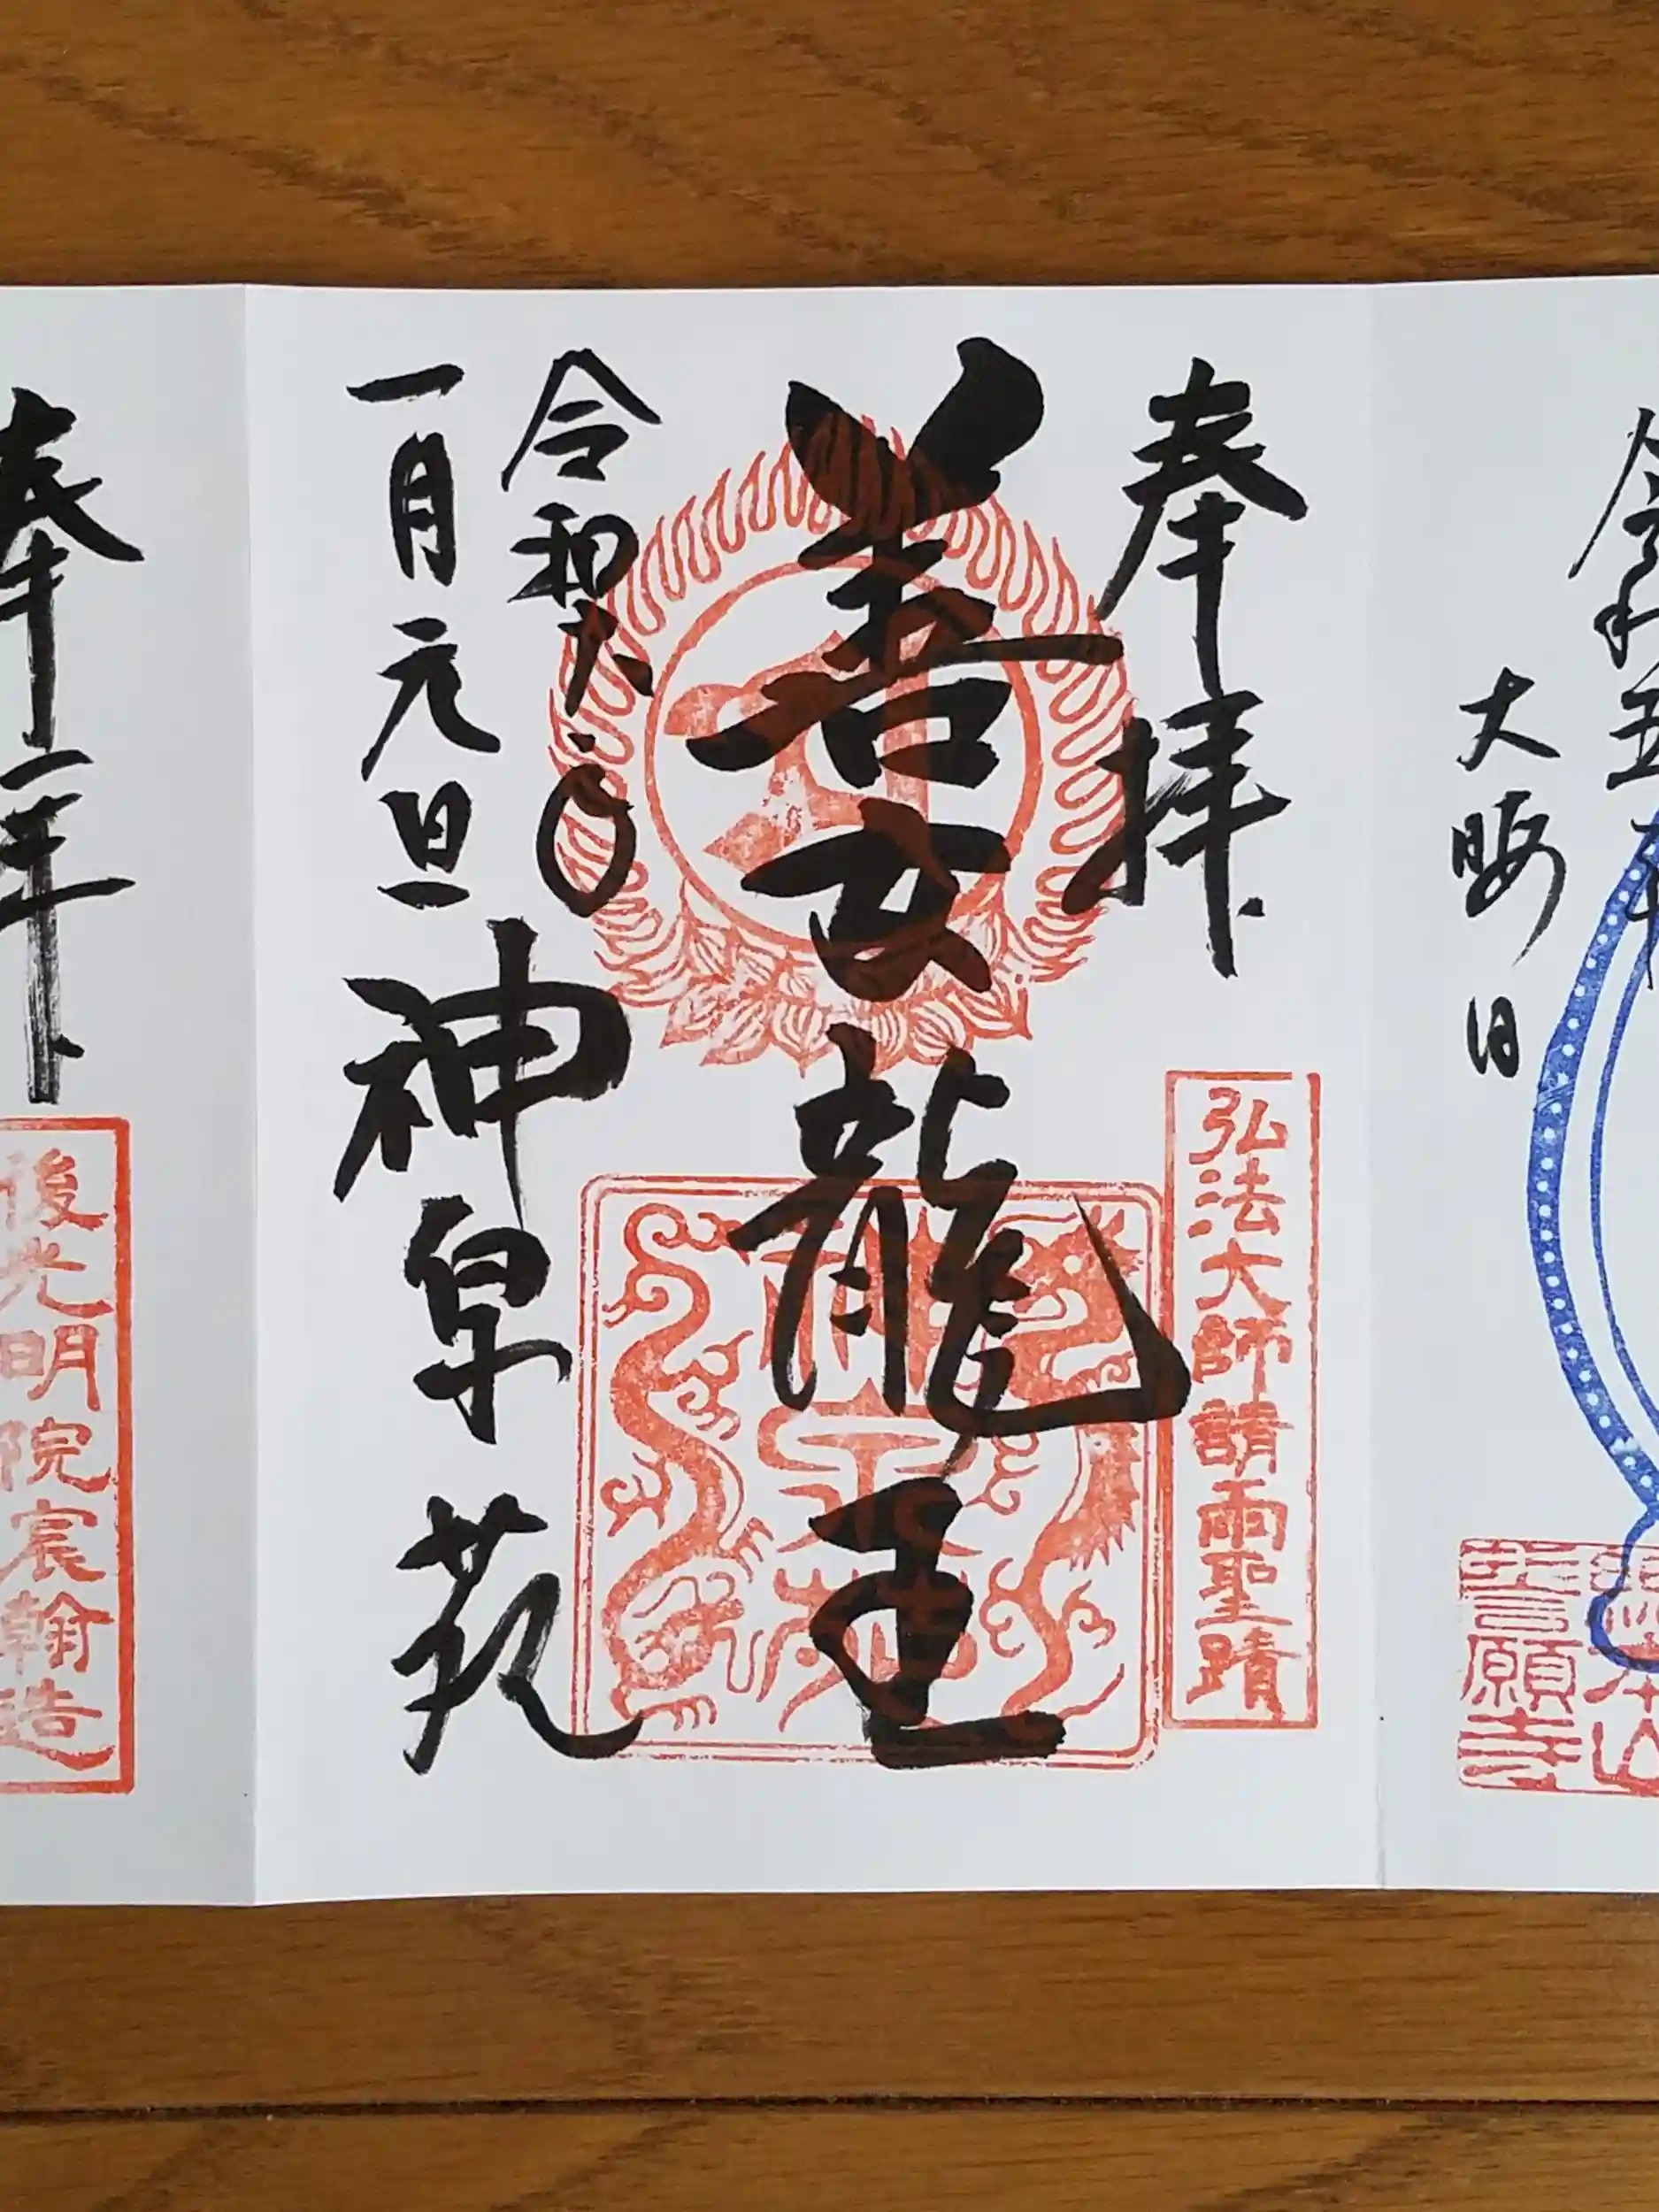 令和五年
大晦日
奉拝
弘法大師請雨聖蹟
善女龍王
令和六
一月元旦
神泉苑
誓願寺
奉拝
後光明院宸翰造